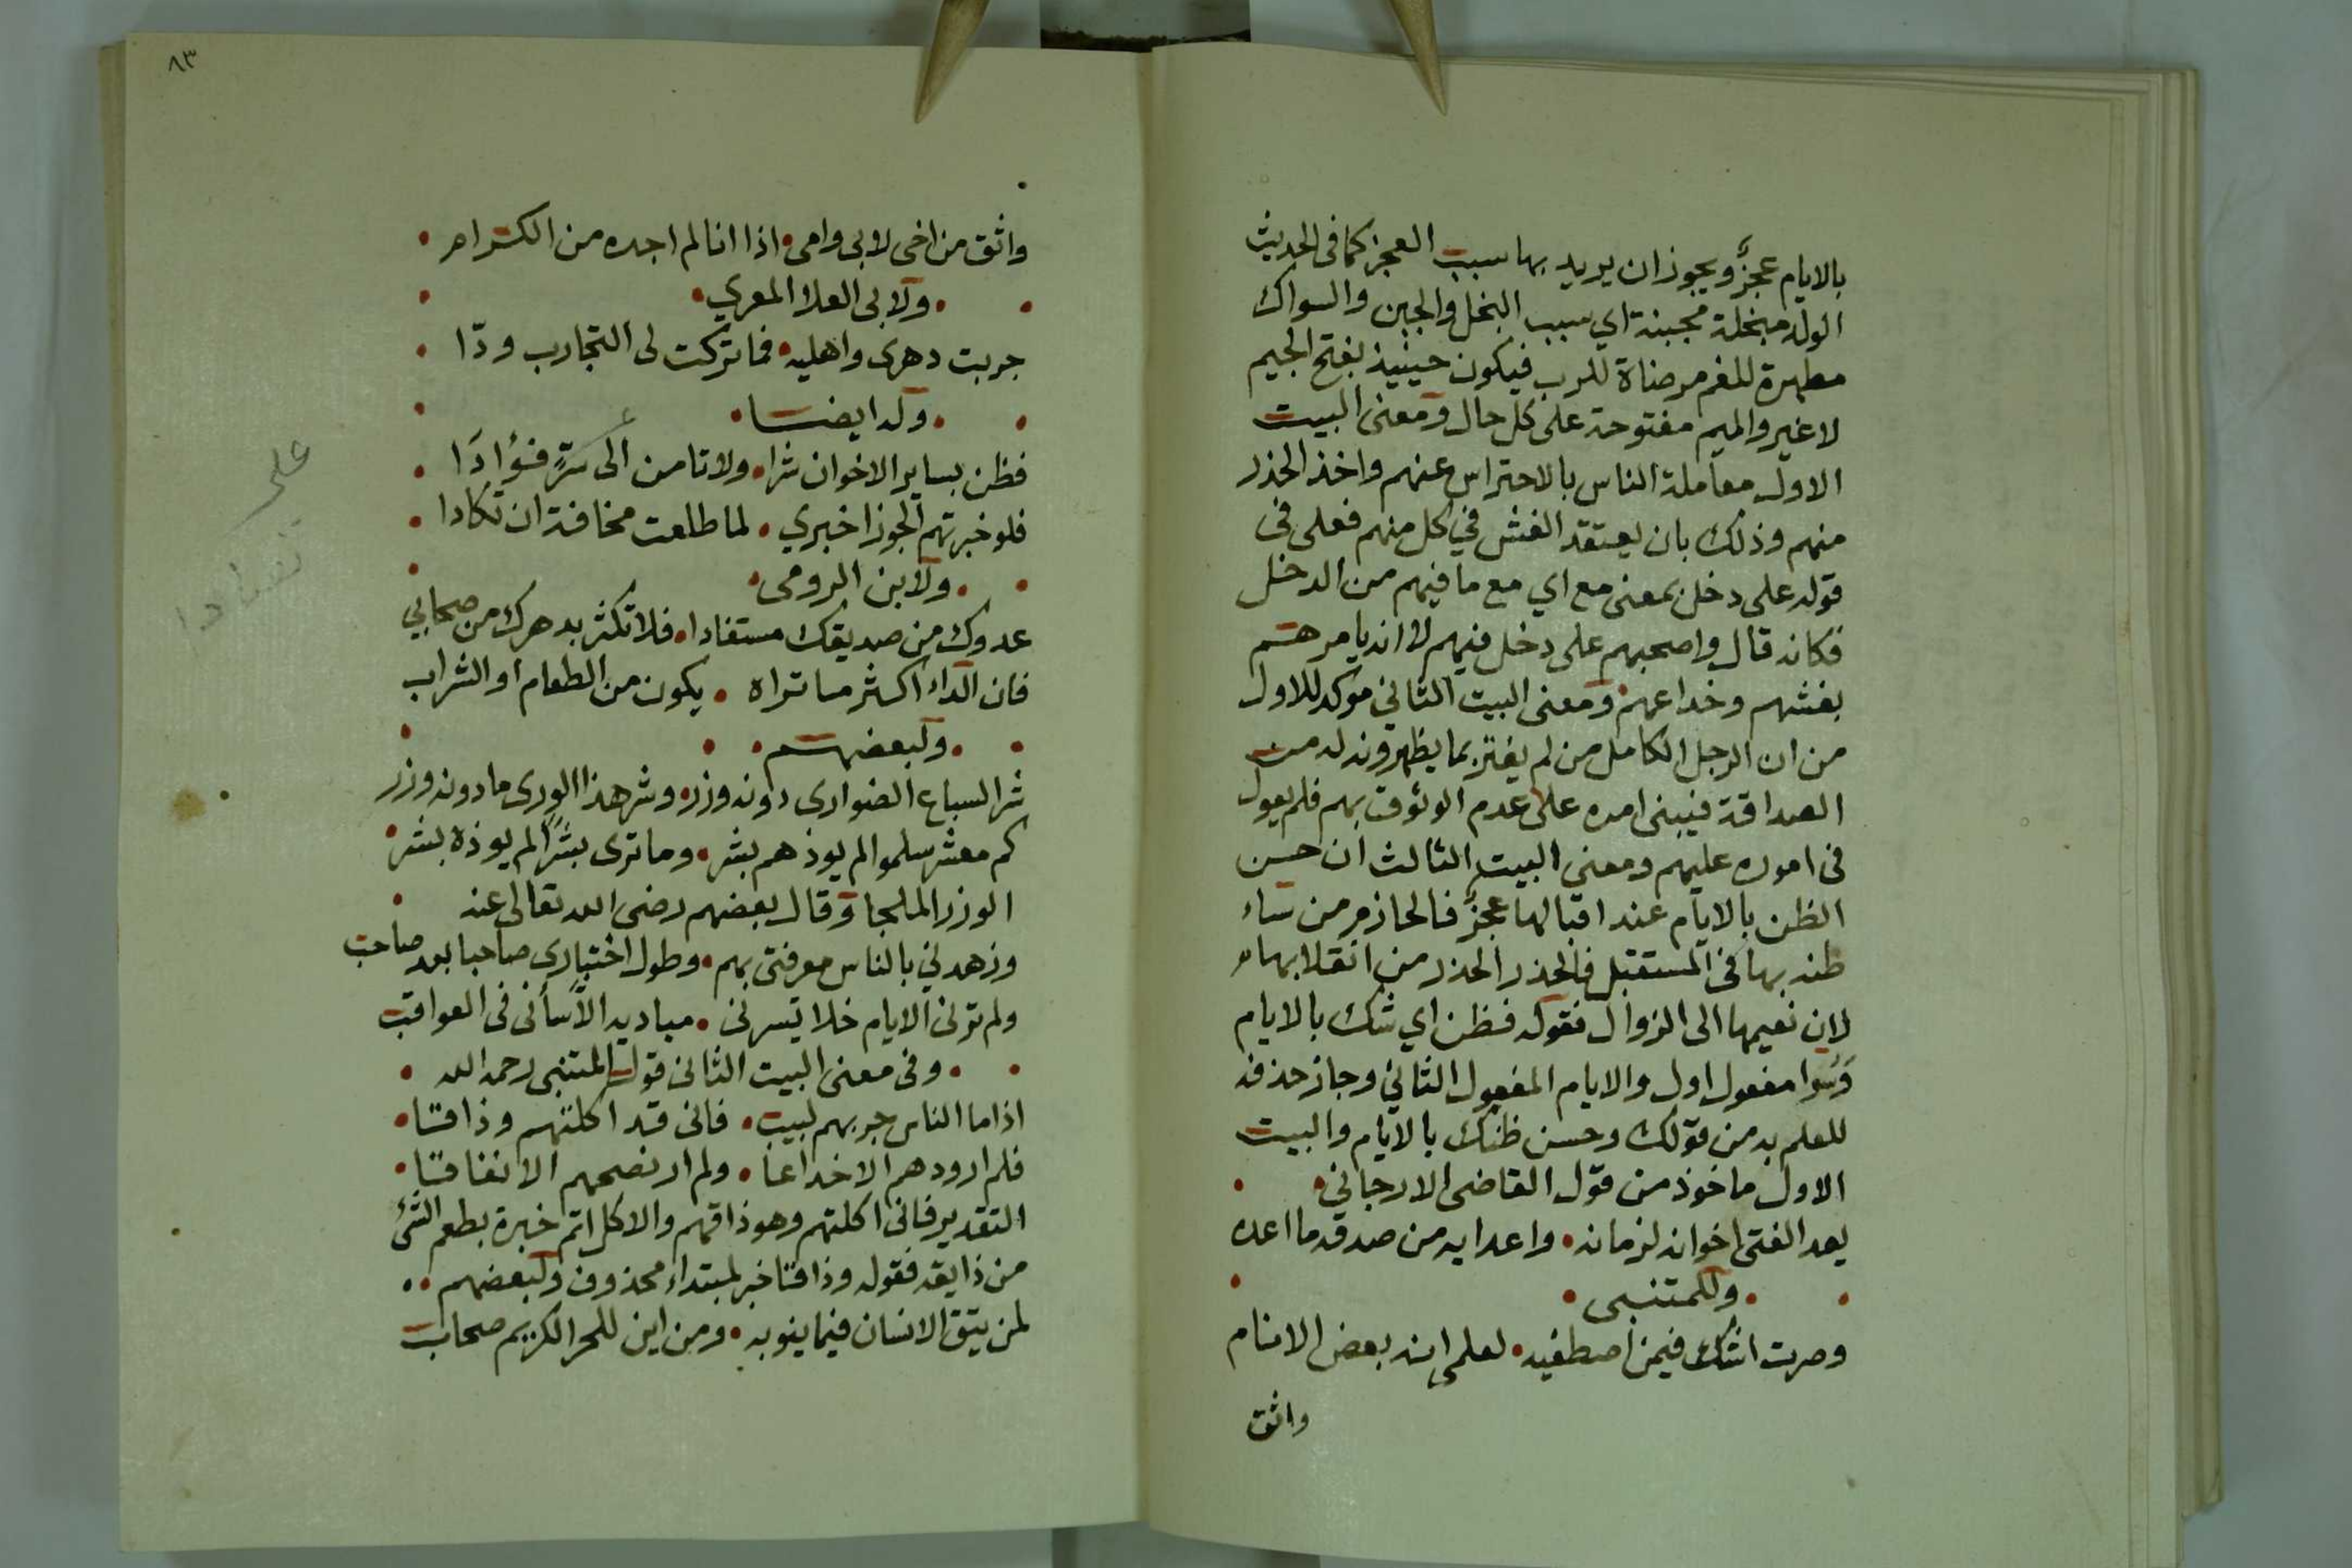 بالايام عجزٌ ويجوز ان يريد بها سبب العجز كما فى الحديث
الولد مبخلة مجبنة اي سبب البخل والجبن والسواك
مطهرة للفم مرضاة للرب فيكون حينيذ بفتح الجيم
لا غير والميم مفتوحة على كل حال ومعنى البيت
الاول معاملة الناس بالاحتراس عنهم واخذ الحذر
منهم وذلك بان يعتقد الغش في كل منهم فعلى فى
قوله على دخل بمعنى مع اي مع ما فيهم من الدخل
فكانه قال واصحبهم على دخل فيهم لا انه يامرهم
بغشهم وخداعهم ومعنى البيت الثاني موكد للاول
من ان الرجل الكامل من لم يغتر بما يظهرونه له من
الصداقة فيبنى امره على عدم الوثوق بهم فلم يعول
فى اموره عليهم ومعنى البيت الثالث ان حسن
الظن بالايام عند اقبالها عجزٌ فالحازم من ساء
ظنه بها فى المستقبل فالحذر الحذر من انقلابها
لان نعيمها الى الزوال فقوله فظن اي شك بالايام
وَسَوا مفعول اول والايام المفعول الثاني وجاز حذفه
للعلم به من قولك وحسن ظنك بالايام والبيت
الاول ماخوذ من قول القاضى الارجاني
يعد الفتى اخوانه لزمانه • واعدايه من صدقه ما اعده
• وللمتنبى •
وصرت اشك فيمن اصطفيه • لعلمى انه بعض الانام
واثق
٨٣
واثق من اخى لابى وامى • اذا انا لم اجده من الكرام •
• ولابى العلا المعري •
جربت دهرى واهليه • فما تركت لى التجارب ودّا •
• وله ايضا •
فظن بساير الاخوان شرا • ولا تامن الى سرٍّ فؤادَا •
على
فلو خبرتهم الجوزا خبري • لما طلعت مخافة ان تكادا •
تصادا
• ولابن الرومى •
عدوك من صديقك مستفادا • فلا تكثر بدهرك من صحابي
فان الداء اكثر ما تراه • يكون من الطعام او الشراب
• ولبعضهم •
شر السباع الضوارى دونه وزر • وشر هذا الورى ما دونه وزر
كم معشر سلموا لم يوذهم بشر • وما ترى بشرًا لم يوذه بشر •
الوزر الملجا وقال بعضهم رضى الله تعالى عنه •
وزهدني بالناس معرفتى بهم • وطول اختبارى صاحبا بعد صاحب
ولم تونى الايام خلا تسرنى • مباديه الا سأنى فى العواقب
• وفى معنى البيت الثانى قول المتنبى رحمه الله •
اذا ما الناس جربهم لبيب • فانى قد اكلتهم وذاقا •
فلم ار ودهم الا خداعا • ولم ار نصحهم الا نفاقا •
التقدير فانى اكلتهم وهو ذاقهم والاكل اتم خبرة بطعم الشئ
من ذايقه فقوله وذاقا خبر لمبتداء محذوف ولبعضهم • •
لمن يثق الانسان فيما ينوبه • ومن اين للحر الكريم صحاب